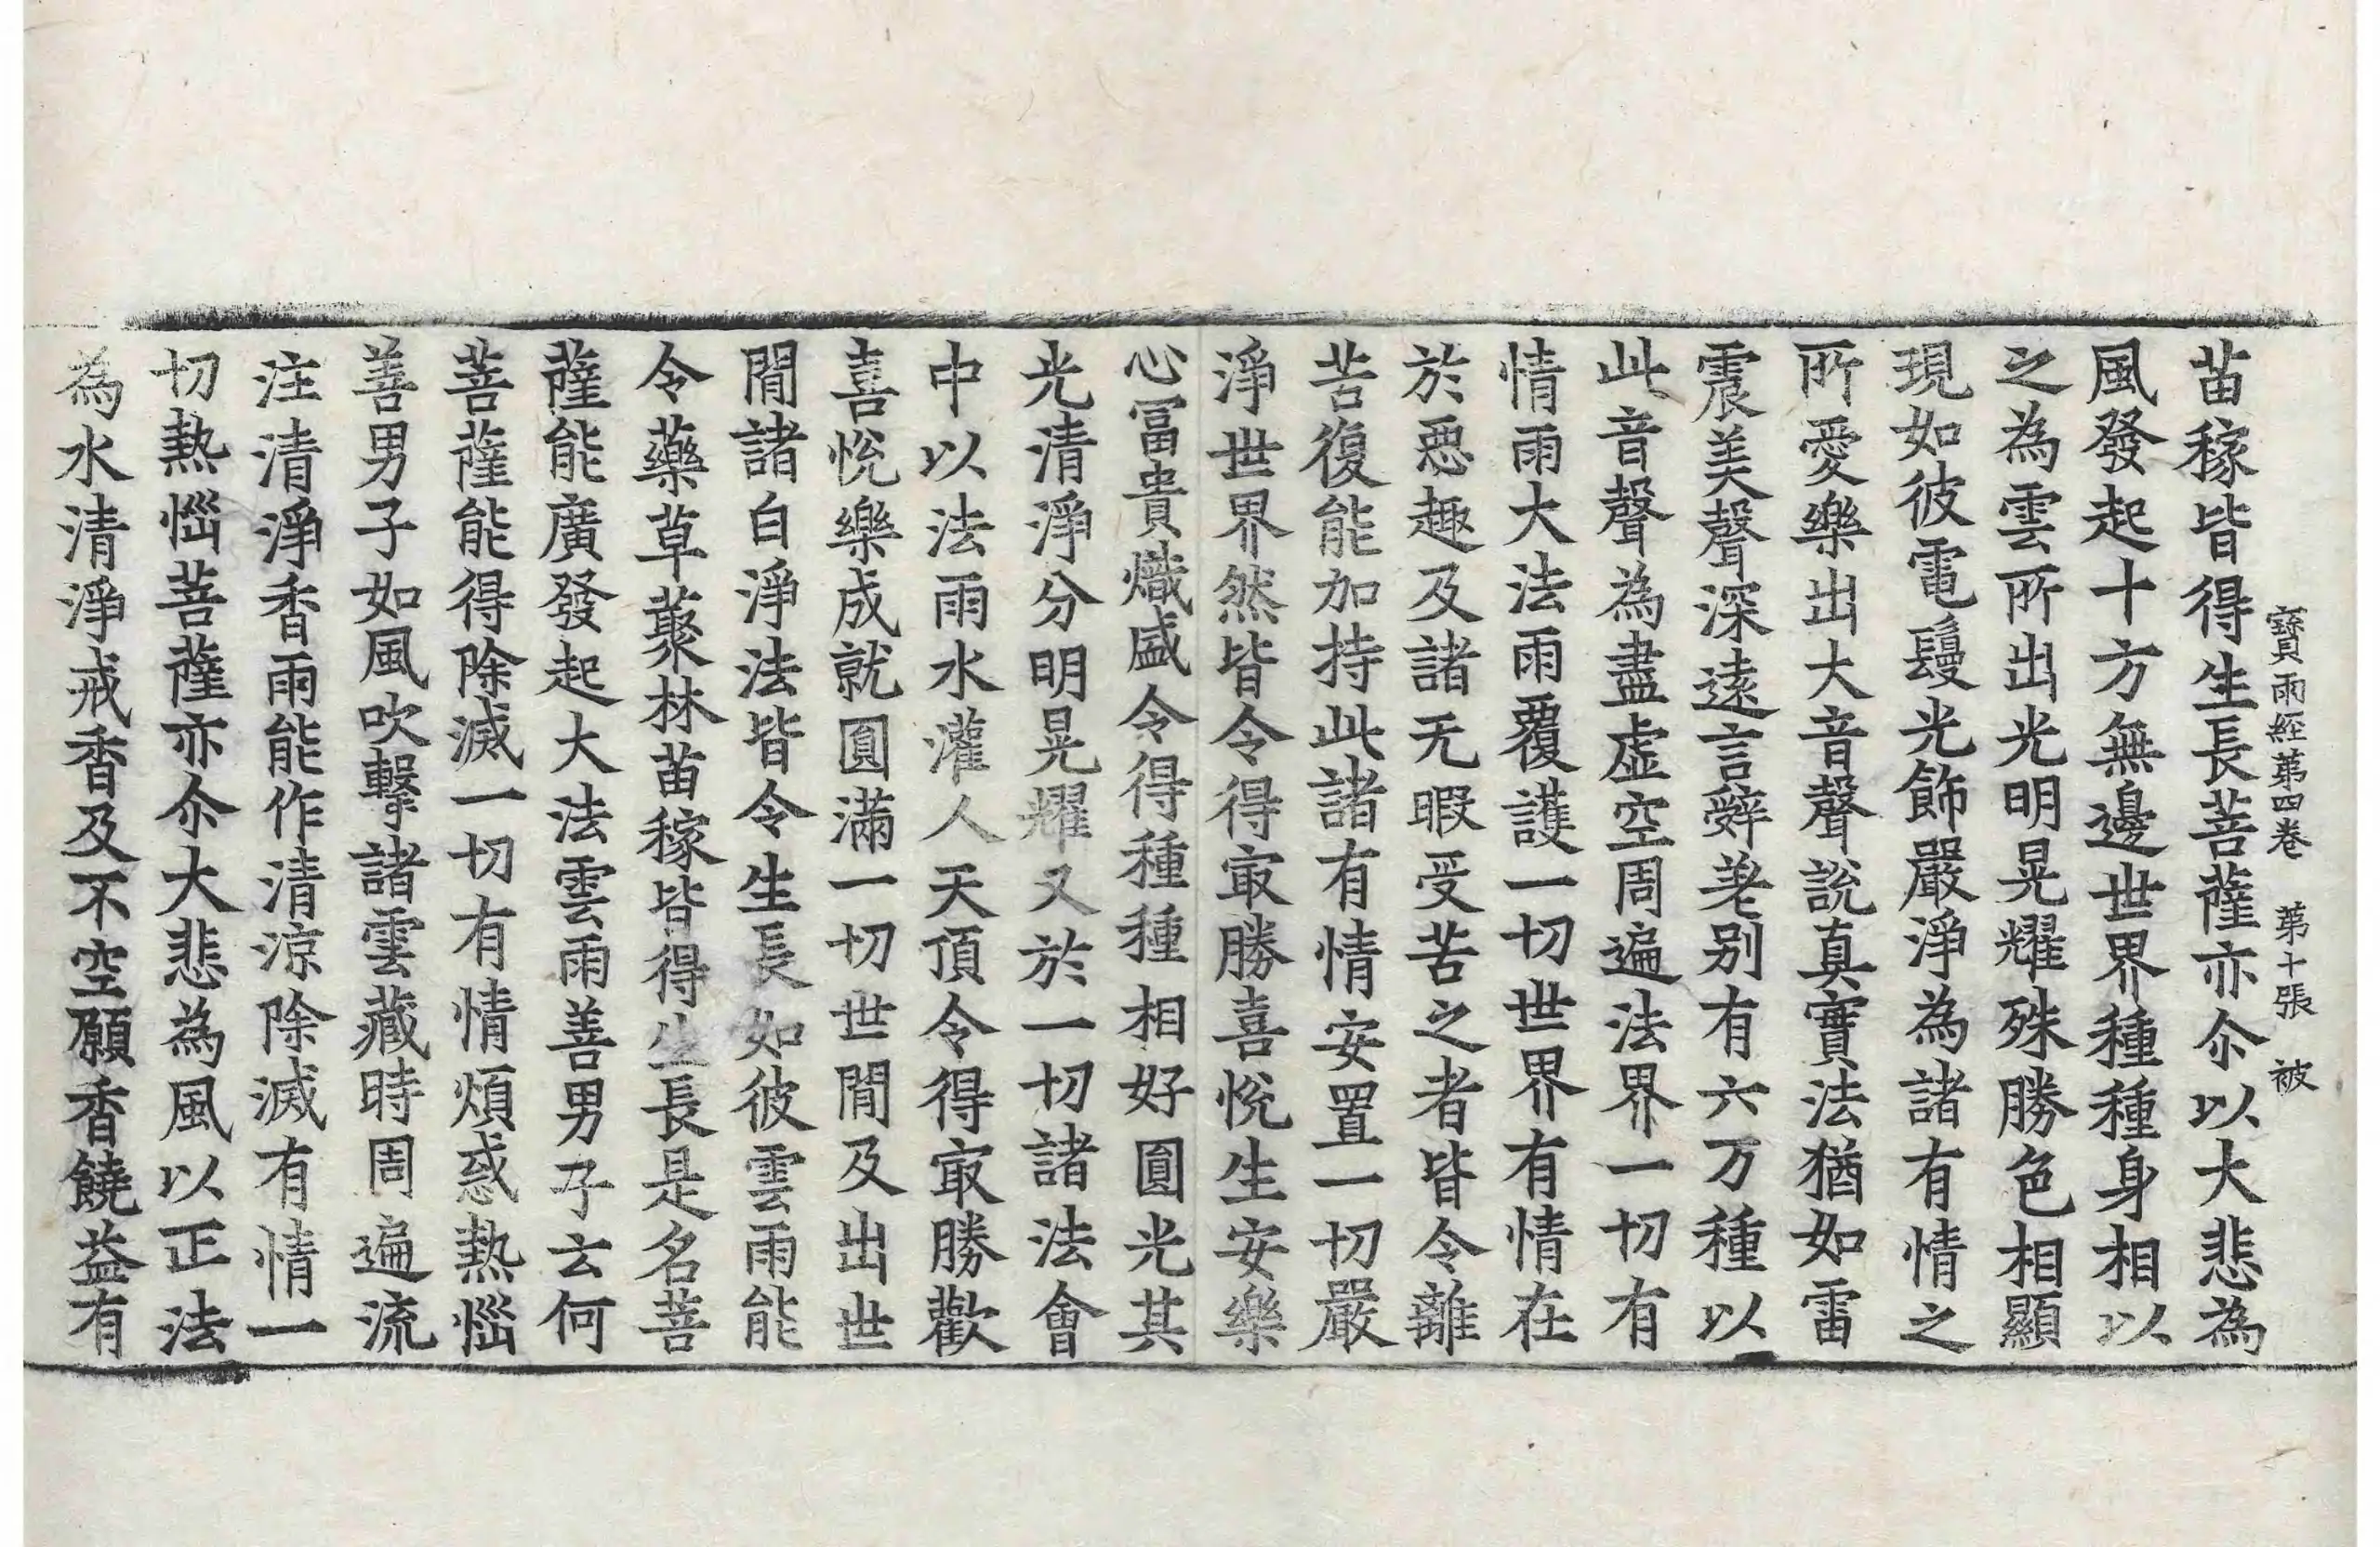 寶雨經第四卷　第十張　被
苗稼皆得生長菩薩亦尒以大悲為
風發起十方無邊世界種種身相以
之為雲所出光明晃耀殊勝色相顯
現如彼電鬘光飾嚴淨為諸有情之
所愛樂出大音聲說真實法猶如雷
震美聲深遠言辭差别有六万種以
此音聲為盡虛空周遍法界一切有
情雨大法雨覆護一切世界有情在
於惡趣及諸无暇受苦之者皆令離
苦復能加持此諸有情安置一切嚴
淨世界然皆令得㝡勝喜悅生安樂
心冨貴熾盛令得種種相好圓光其
光清淨分明晃耀又於一切諸法會
中以法雨水灌人天頂令得㝡勝歡
喜悅樂成就圓滿一切世間及出世
間諸白淨法皆令生長如彼雲雨能
令藥草藂林苗稼皆得生長是名菩
薩能廣發起大法雲雨善男子云何
菩薩能得除滅一切有情煩惑熱惱
善男子如風吹擊諸雲藏時周遍流
注清淨香雨能作清涼除滅有情一
切熱惱菩薩亦尒大悲為風以正法
為水清淨戒香及不空願香饒益有